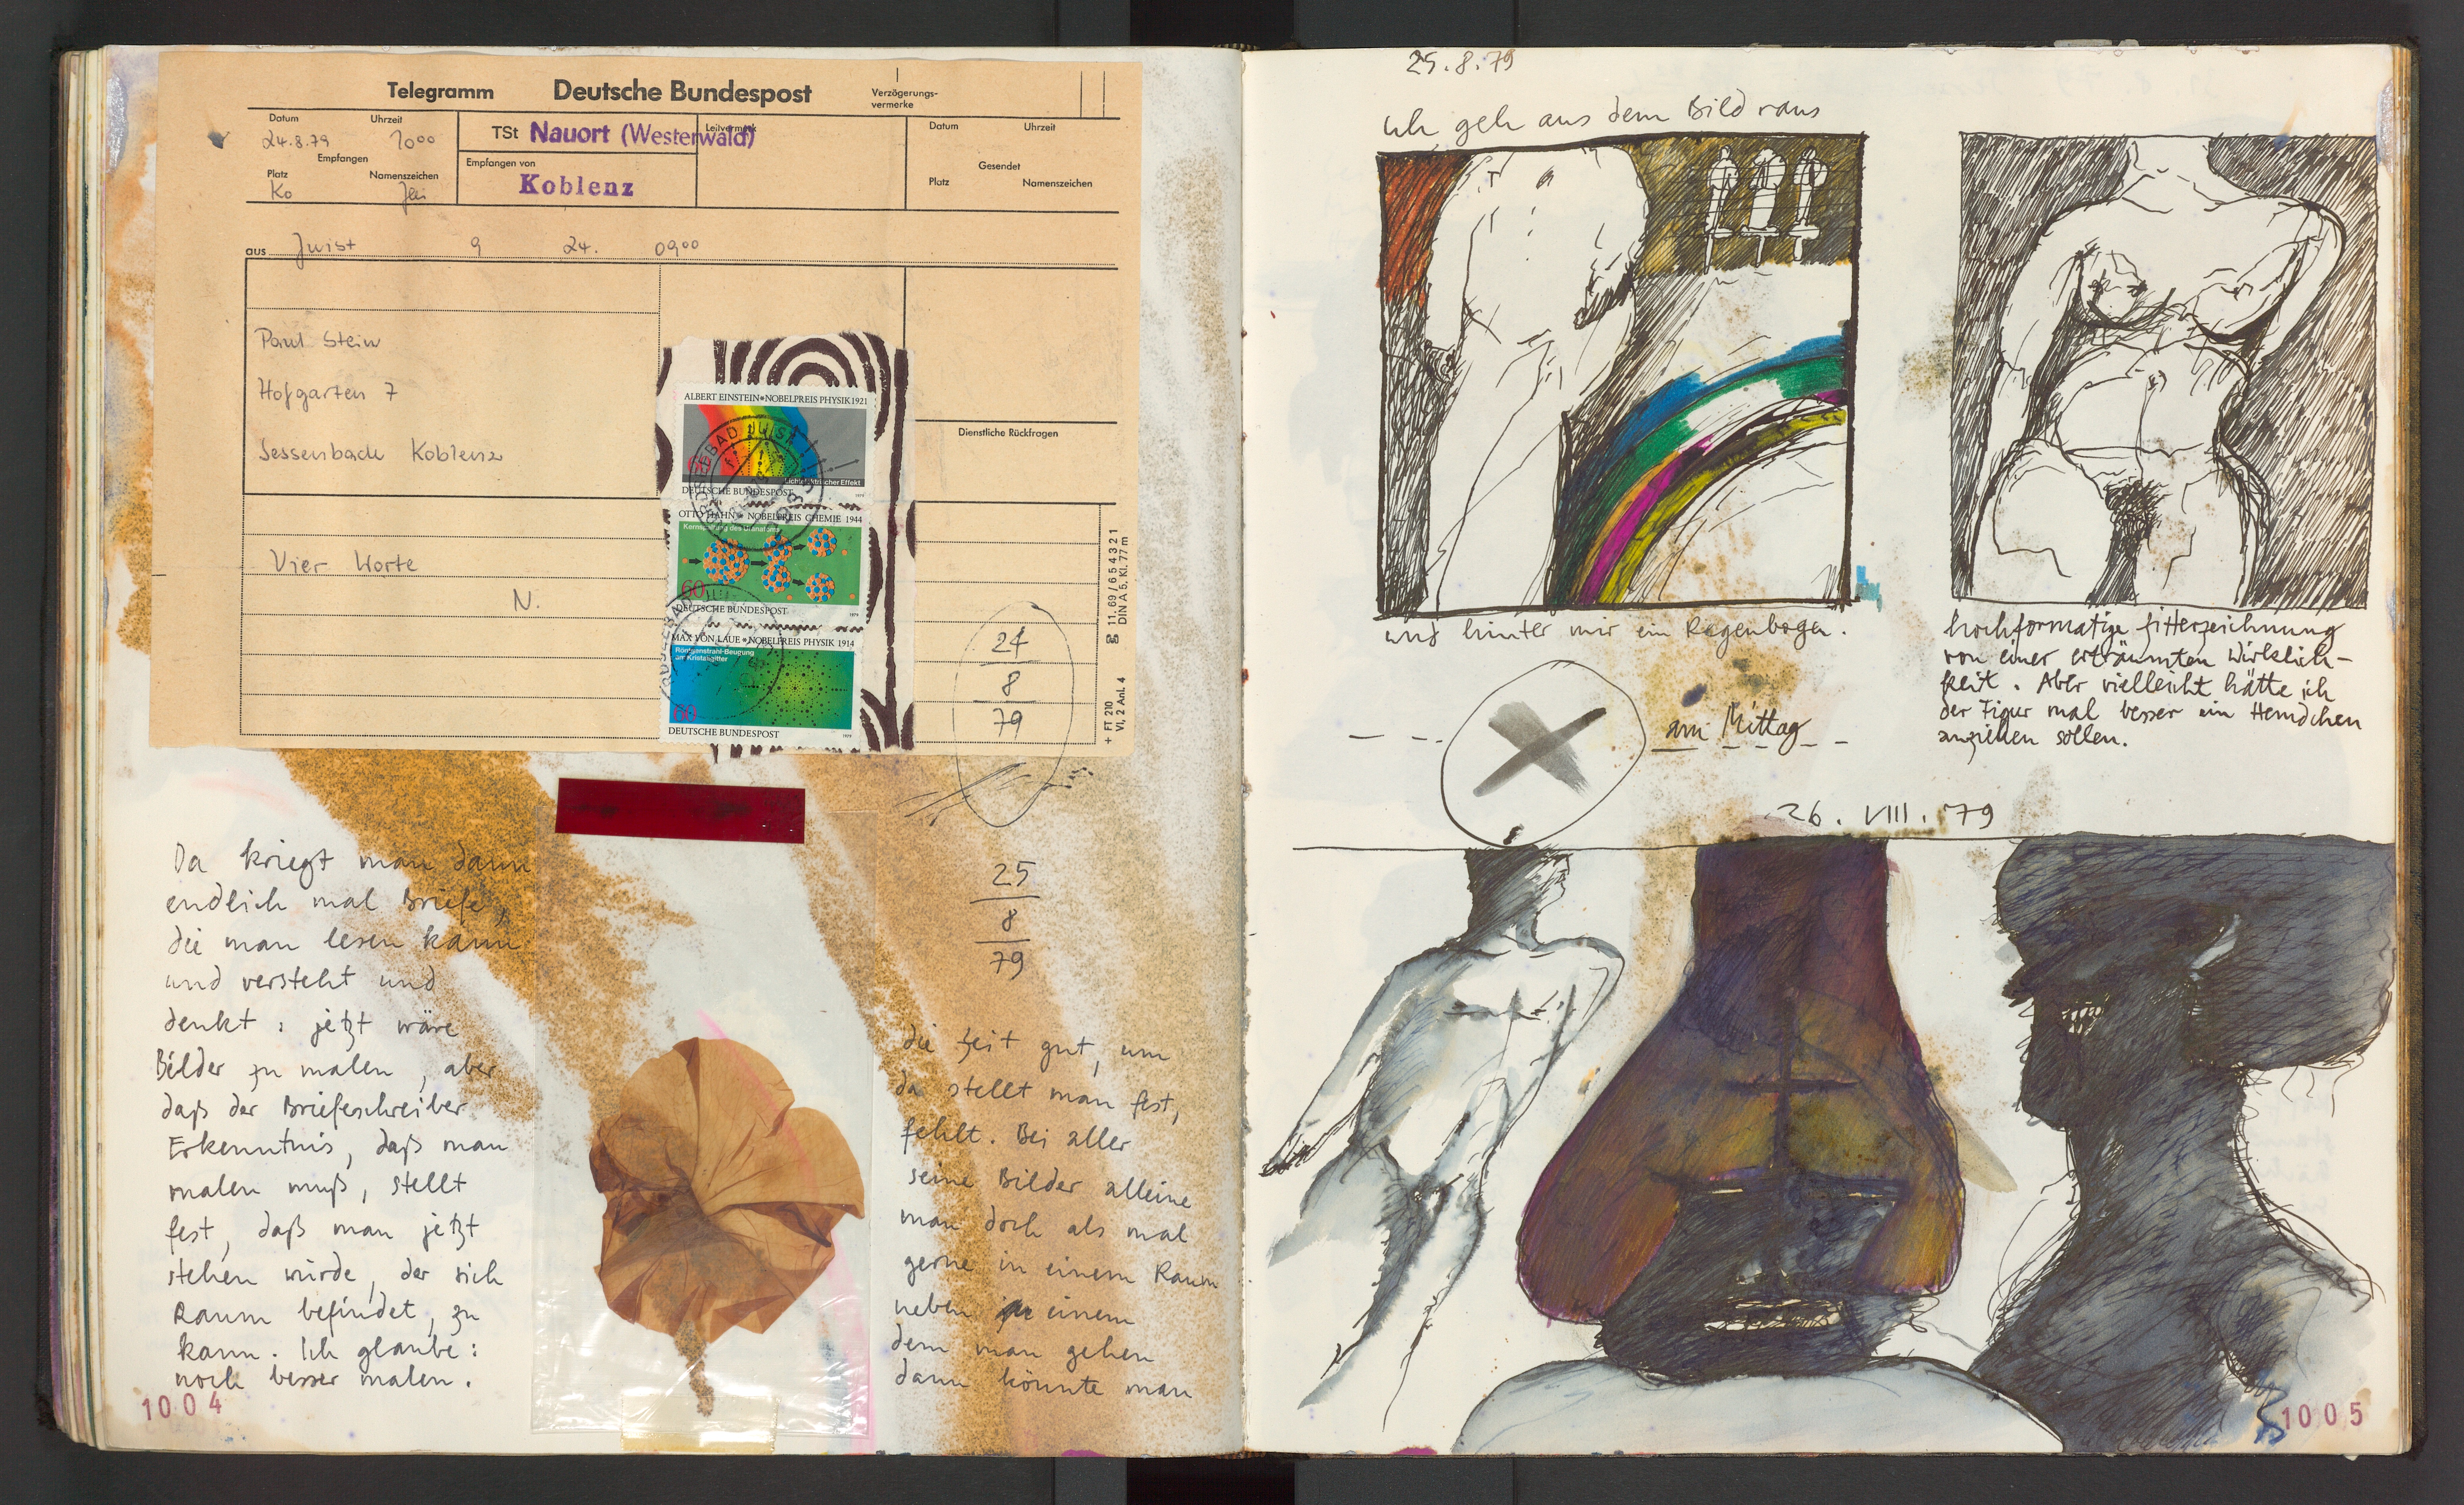 Telegramm Deutsche Bundespost
Verzögerungs-
vermerke
Datum Uhrzeit
24.8.79 10⁰⁰
Empfangen
Platz Namenszeichen
Ko
TSt Nauort (Westerwald)
Leitvermerk
Empfangen von
Koblenz
Datum Uhrzeit
Gesendet
Platz Namenszeichen
aus Juist 9 24. 09⁰⁰
Paul Stein
Hofgarten 7
Sessenbach Koblenz
Dienstliche Rückfragen
Vier Worte
N.
ALBERT EINSTEIN NOBELPREIS PHYSIK 1921
60
Lichtelektrischer Effekt
DEUTSCHE BUNDESPOST 1979
OTTO HAHN NOBELPREIS CHEMIE 1944
Kernspaltung des Uranatoms
60
DEUTSCHE BUNDESPOST 1979
MAX VON LAUE NOBELPREIS PHYSIK 1914
Röntgenstrahl-Beugung
am Kristallgitter
60
DEUTSCHE BUNDESPOST 1979
11.69 / 6 5 4 3 2 1
DIN A 5, Kl. 77 m
+ FT 210
VI, 2 Anl. 4
24
8
79
25
8
79
Da kriegt man dann
endlich mal Briefe,
die man lesen kann
und versteht und
denkt: jetzt wäre
Bilder zu malen, aber
daß der Briefeschreiber
Erkenntnis, daß man
malen muß, stellt
fest, daß man jetzt
stehen würde, der sich
Raum befindet, zu
kann. Ich glaube:
noch besser malen.
die Zeit gut, um
da stellt man fest,
fehlt. Bei aller
seine Bilder alleine
man doch als mal
gerne in einem Raum
neben einem
dem man gehen
dann könnte man
1004
25.8.79
Ich geh aus dem Bild raus
und hinter mir ein Regenbogen.
am Mittag
hochformatige Gitterzeichnung
von einer erträumten Wirklich-
keit. Aber vielleicht hätte ich
der Figur mal besser ein Hemdchen
anziehen sollen.
26. VIII. 79
1005